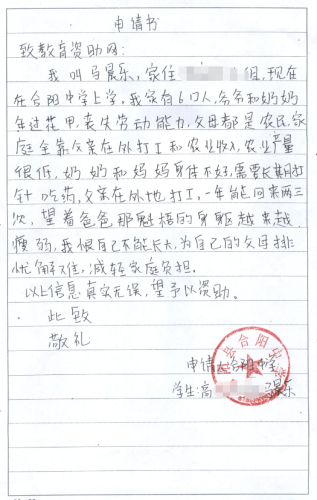 申请书
致教育资助网：
我叫马晨乐，家住 组，现在
在合阳中学上学，我家有6口人，爷爷和奶奶
年过花甲，丧失劳动能力，父母都是农民，家
庭全靠父亲在外打工和农业收入，农业产量
很低，奶奶和妈妈身体不好，需要长期打
针吃药，父亲在外地打工，一年能回来两三
次，望着爸爸那魁梧的身躯越来越
瘦弱，我恨自己不能长大，为自己的父母排
忧解难，减轻家庭负担。
以上信息真实无误，望予以资助。
此致
敬礼
申请人：合阳中学
学生：高 马晨乐